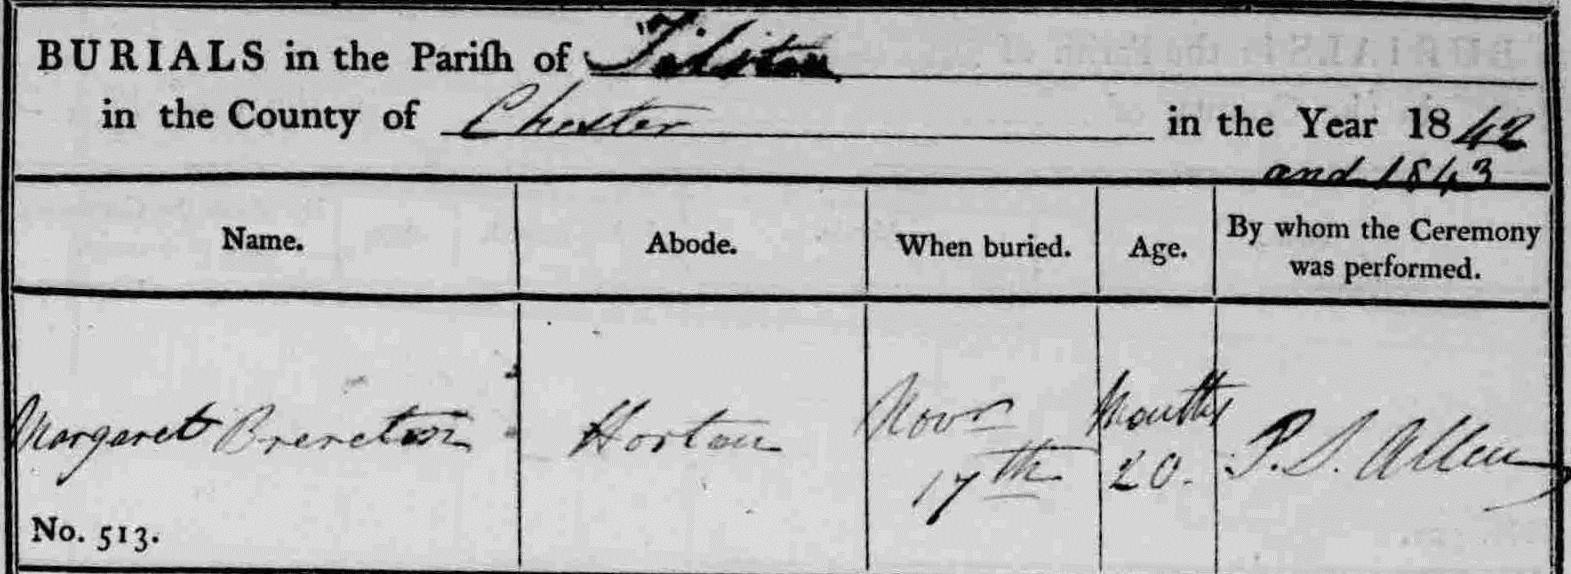 BURIALS in the Pariſh of Tilston
in the County of Chester in the Year 1842
and 1843
Name. Abode. When buried. Age. By whom the Ceremony was performed.
Margaret Brereton Horton Novr 17th Months 20. P. S. Allen
No. 513.